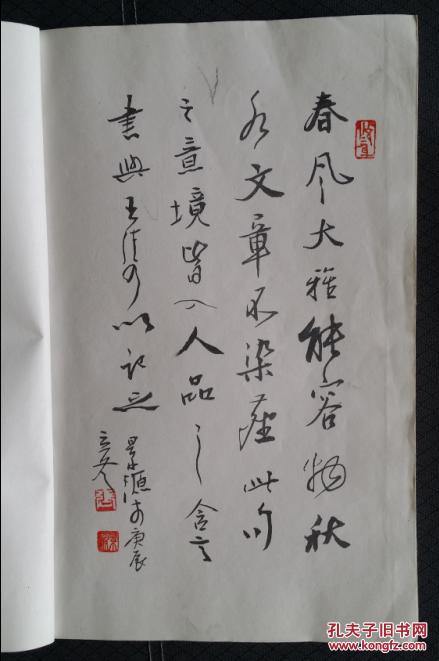 春风大雅能容物秋
水文章不染尘此句
之意境皆入人品之含言
书与王 以记之
景 于庚辰
孔夫子旧书网
KONGFZ.COM